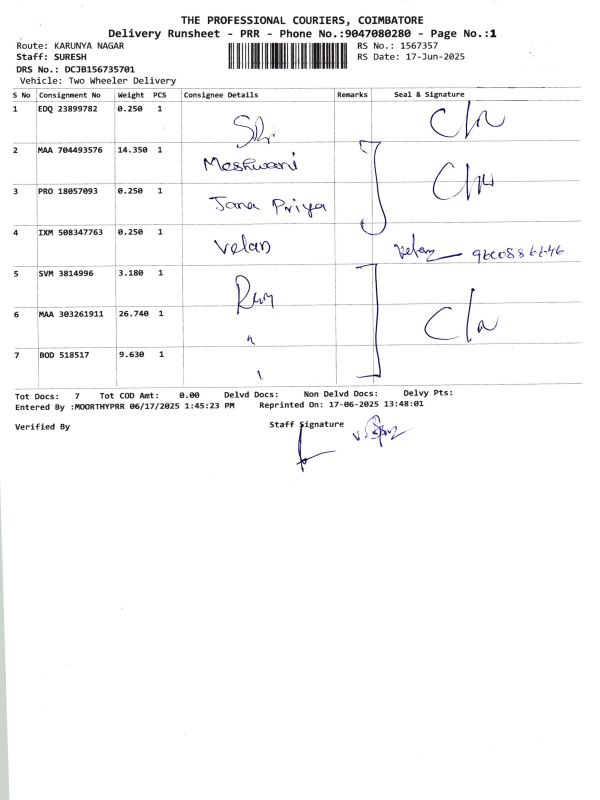 THE PROFESSIONAL COURIERS, COIMBATORE
Delivery Runsheet - PRR - Phone No.:9047080280 - Page No.:1
Route: KARUNYA NAGAR RS No.: 1567357
Staff: SURESH RS Date: 17-Jun-2025
DRS No.: DCJB156735701
Vehicle: Two Wheeler Delivery
S No Consignment No Weight PCS Consignee Details Remarks Seal & Signature
1 EDQ 23899782 0.250 1
2 MAA 704493576 14.350 1 Meshwani
3 PRO 18057093 0.250 1 Jana Priya
4 IXM 508347763 0.250 1 Velan
5 SVM 3814996 3.180 1
6 MAA 303261911 26.740 1
7 BOD 518517 9.630 1
Tot Docs: 7 Tot COD Amt: 0.00 Delvd Docs: Non Delvd Docs: Delvy Pts:
Entered By :MOORTHYPRR 06/17/2025 1:45:23 PM Reprinted On: 17-06-2025 13:48:01
Verified By Staff Signature